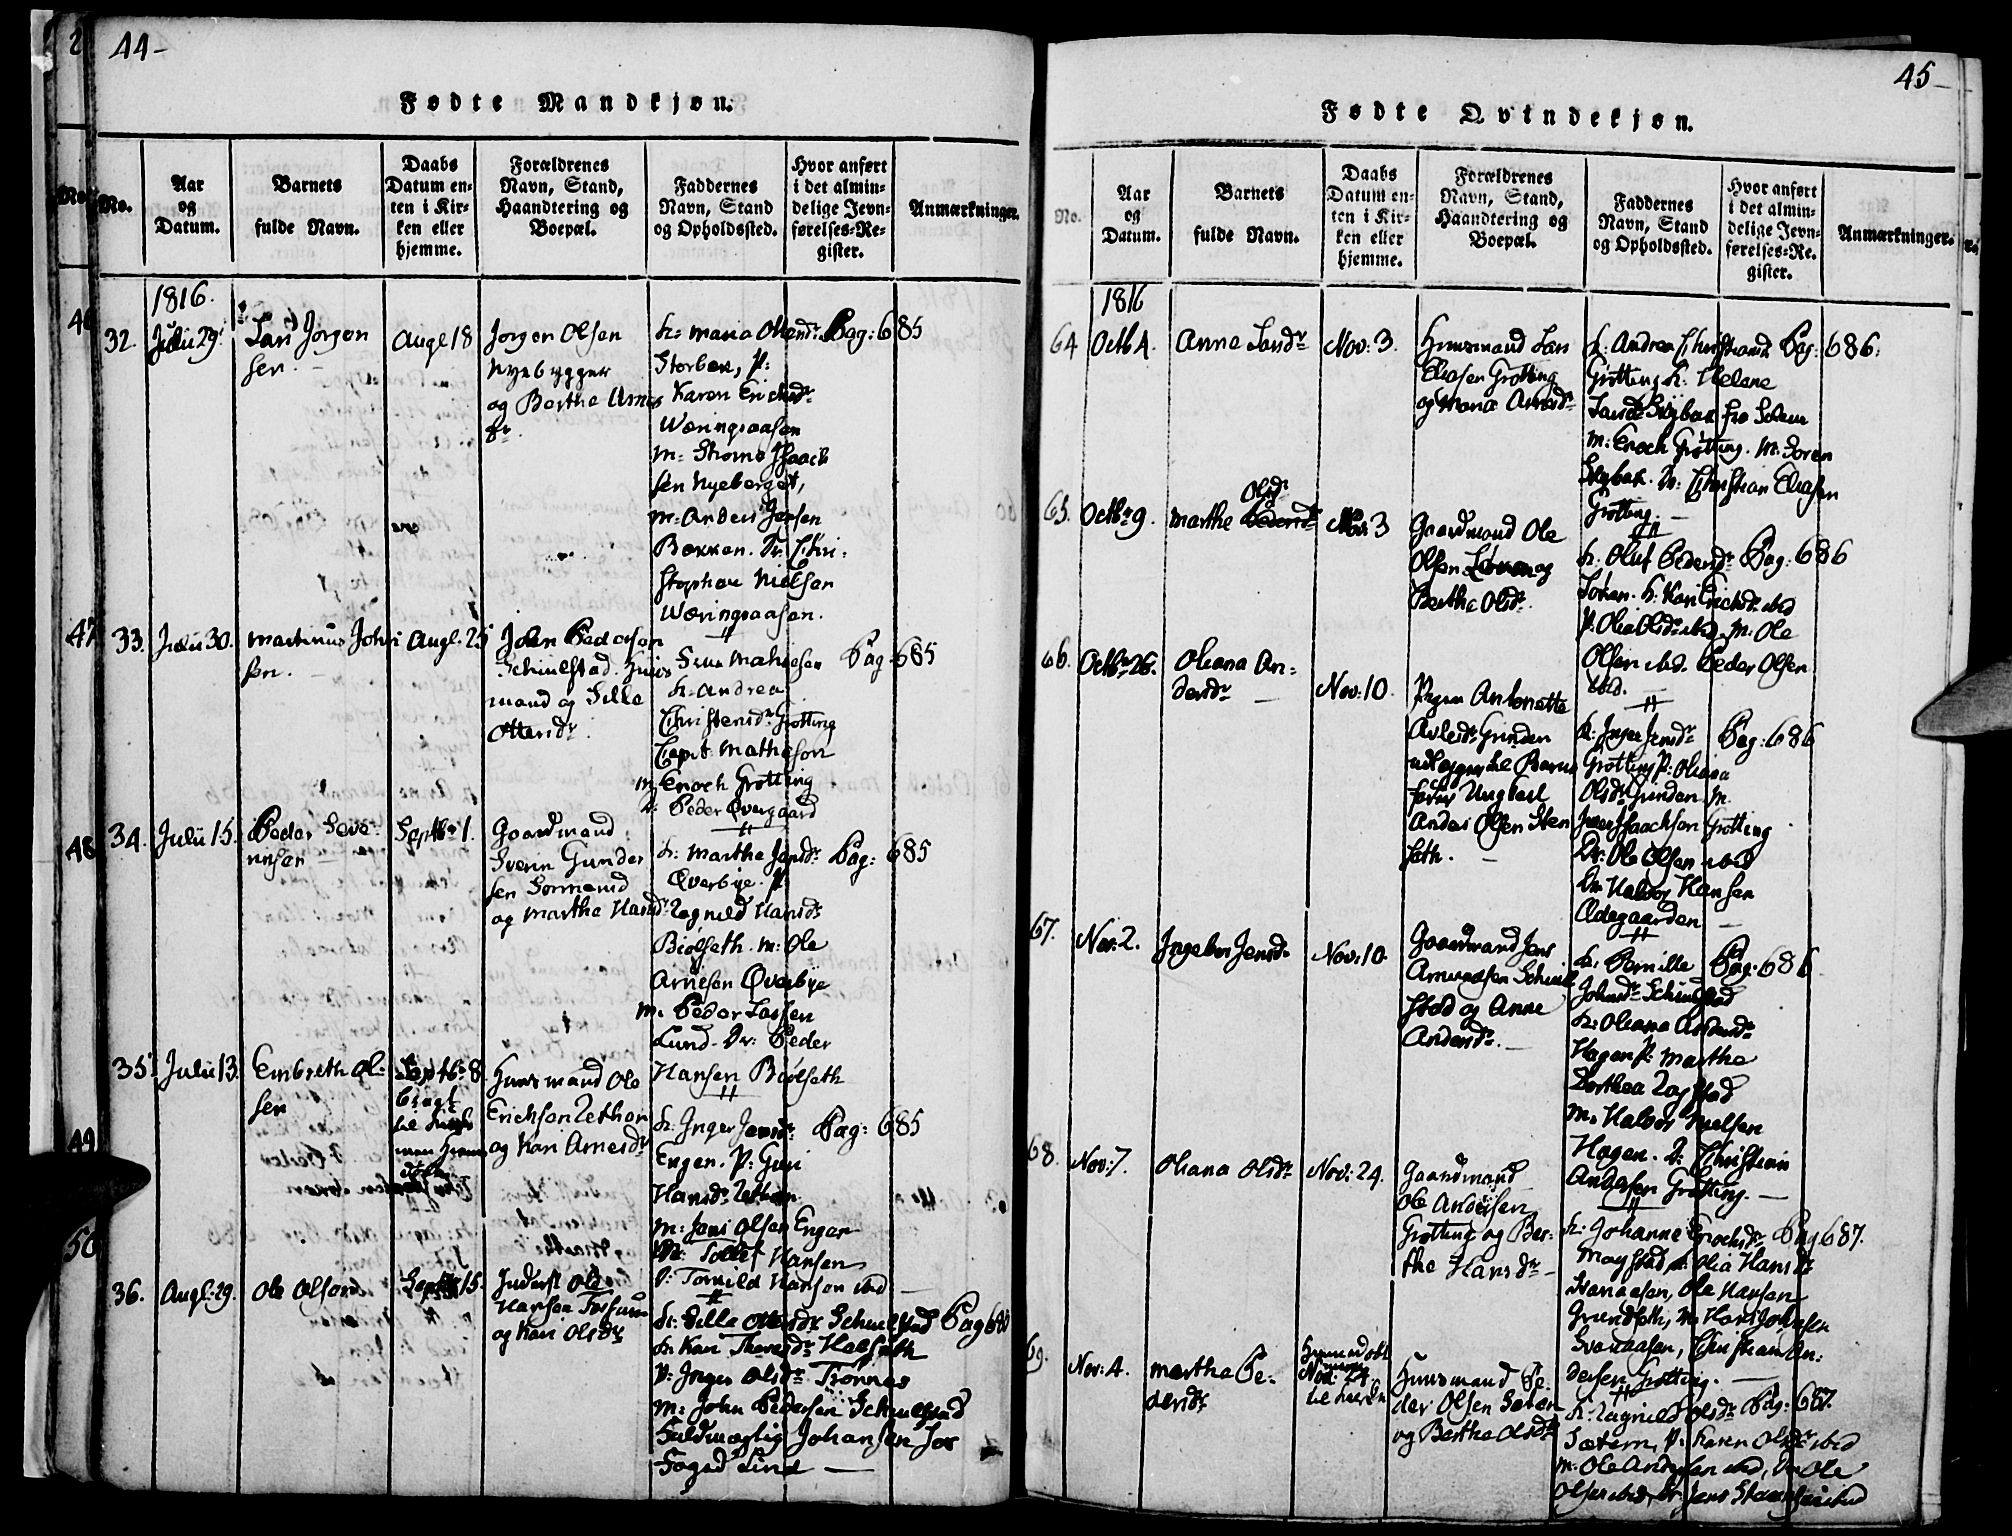 44-
Fødte Mandkjøn.
No.
Aar
og
Datum.
Barnets
fulde Navn.
Daabs
Datum en-
ten i Kir-
ken eller
hjemme.
Forældrenes
Navn, Stand,
Haandtering og
Boepæl.
Faddernes
Navn, Stand
og Opholdssted.
Hvor anført
i det almin-
delige Jevn-
førelses-Re-
gister.
Anmærkninger.
1816.
32. Julii 29.
Lars Jorgen
sen.
Augl 18
Jorgen Olsen
Nyebygger
og Berthe Arnes
dr.
Storbæk, P:
Karen Erichsdr
Wæringsaasen
M:
sen Nyeberget,
M: Anders Jensen
Bækken. Dr: Chri-
stopher Nielsen
Wæringsaasen.
Pag: 685
33. Julii 30.
Martinus John
sen.
Augl. 25
John Pedersen
Schiulstad Huus
mand og Sille
Ottersdr
K: Andrea
Christensdr Grøtting
Capt. Mathesen
M: Enoch Grøtting
Peder Øvergaard
Pag: 685
34. Julii 15.
Peder Seve-
rinsen
Septbr 1.
Gaardmand
Sverin Gunder
sen
og Marthe Hansdr
K: Marthe Jensdr
Øverbye. P:
Ragnild Hansdr
Biølseth. M: Ole
Arnesen Øverbye
M. Peder Larsen
Lund. Dr: Peder
Hansen Biølseth
Pag: 685
35. Julii 13.
Embreth Ol-
sen
Septbr 8.
Huusmand Ole
Erichsen Æthon
og Kari Arnesdr
K: Inger Jensdr
Engen. P: Guri
Hansdr
M: Jens Olsen Engen
Tollef Hansen
Tomild Hansen ibid
Pag: 685
36. Augl. 29.
Ole Olsen
Septbr 15.
Inderst Ole
Hansen
og Kari Olsdr
K: Sille Ottersdr Schiulstad
K: Kari
P: Inger Olsdr Trønnes
M: John Pedersen Schiulstad
Fuldmægtig Johansen hos
Foged Lind
45-
Fødte Qvindekjøn.
No.
Aar
og
Datum.
Barnets
fulde Navn.
Daabs
Datum en-
ten i Kir-
ken eller
hjemme.
Forældrenes
Navn, Stand,
Haandtering og
Boepæl.
Faddernes
Navn, Stand
og Opholdssted.
Hvor anført
i det almin-
delige Jevn-
førelses-Re-
gister.
Anmærkninger.
1816
64 Octb 4.
Anne Larsdr
Nov: 3.
Huusmand Lars
Eliasen Grøtting
og Maria Arnesdr
K: Andrea Christensdr
Grøtting K: Helene
Larsdr
M: Enoch Grøtting. M: Soren
Christian Eliasen
Grøtting.
Pag: 686.
65. Octbr 9.
Marthe Olsdr
Nov: 3
Gaardmand Ole
Olsen og
Berthe Olsdr.
K: Oluf Pedersdr
K: Kari Erichsdr ibid
P: Olia Olsdr ibid, M: Ole
Olsen ibid. Peder Olsen
ibid.
Pag: 686
66. Octbr 26.
Oliana An-
dersdr
Nov: 10.
Pigen Antonette
Grinden
udlægger til Barne
fader Ungkarl
Anders Olsen Sten
seth.
K: Inger Jensdr
Grøtting P: Oliana
Olsdr Grinden M:
Iver Isaachsen Grøtting
Dr: Ole Olsen ibid
Dr: Halvor Hansen
Ødegaarden
Pag: 686
67. Nov: 2.
Ingebor Jensdr
Nov: 10
Gaardmand Jens
Amundsen Schiul
stad og Anne
Andersdr.
K: Pernille
Johnsdr Schiulstad
K: Oliana Andersdr
Hagen P: Marthe
Dorthea
M: Halvor Nielsen
Hagen. D: Christian
Andersen Grøtting.
Pag: 686
68. Nov: 7.
Oliana Olsdr
Nov: 24.
Gaardmand
Ole Andersen
Grøtting og Ber-
the Hansdr
K: Johanne Enochsdr
Olia Hansdr
Ole Hansen
Grundseth, M: Hans Johnsen
Svenaasen, Christian An-
dersen Grøtting.
Pag 687.
69. Nov: 4.
Marthe Pe-
dersdr
Nov: 24
Huusmand Pe-
der Olsen Sæter
og Berthe Olsdr
K: Ragnild Olsdr
Sætern, P: Karen Olsdr ibid
M: Ole Andersen ibid, Dr: Ole
Olsen ibid, Dr: Jens
Pag: 687.